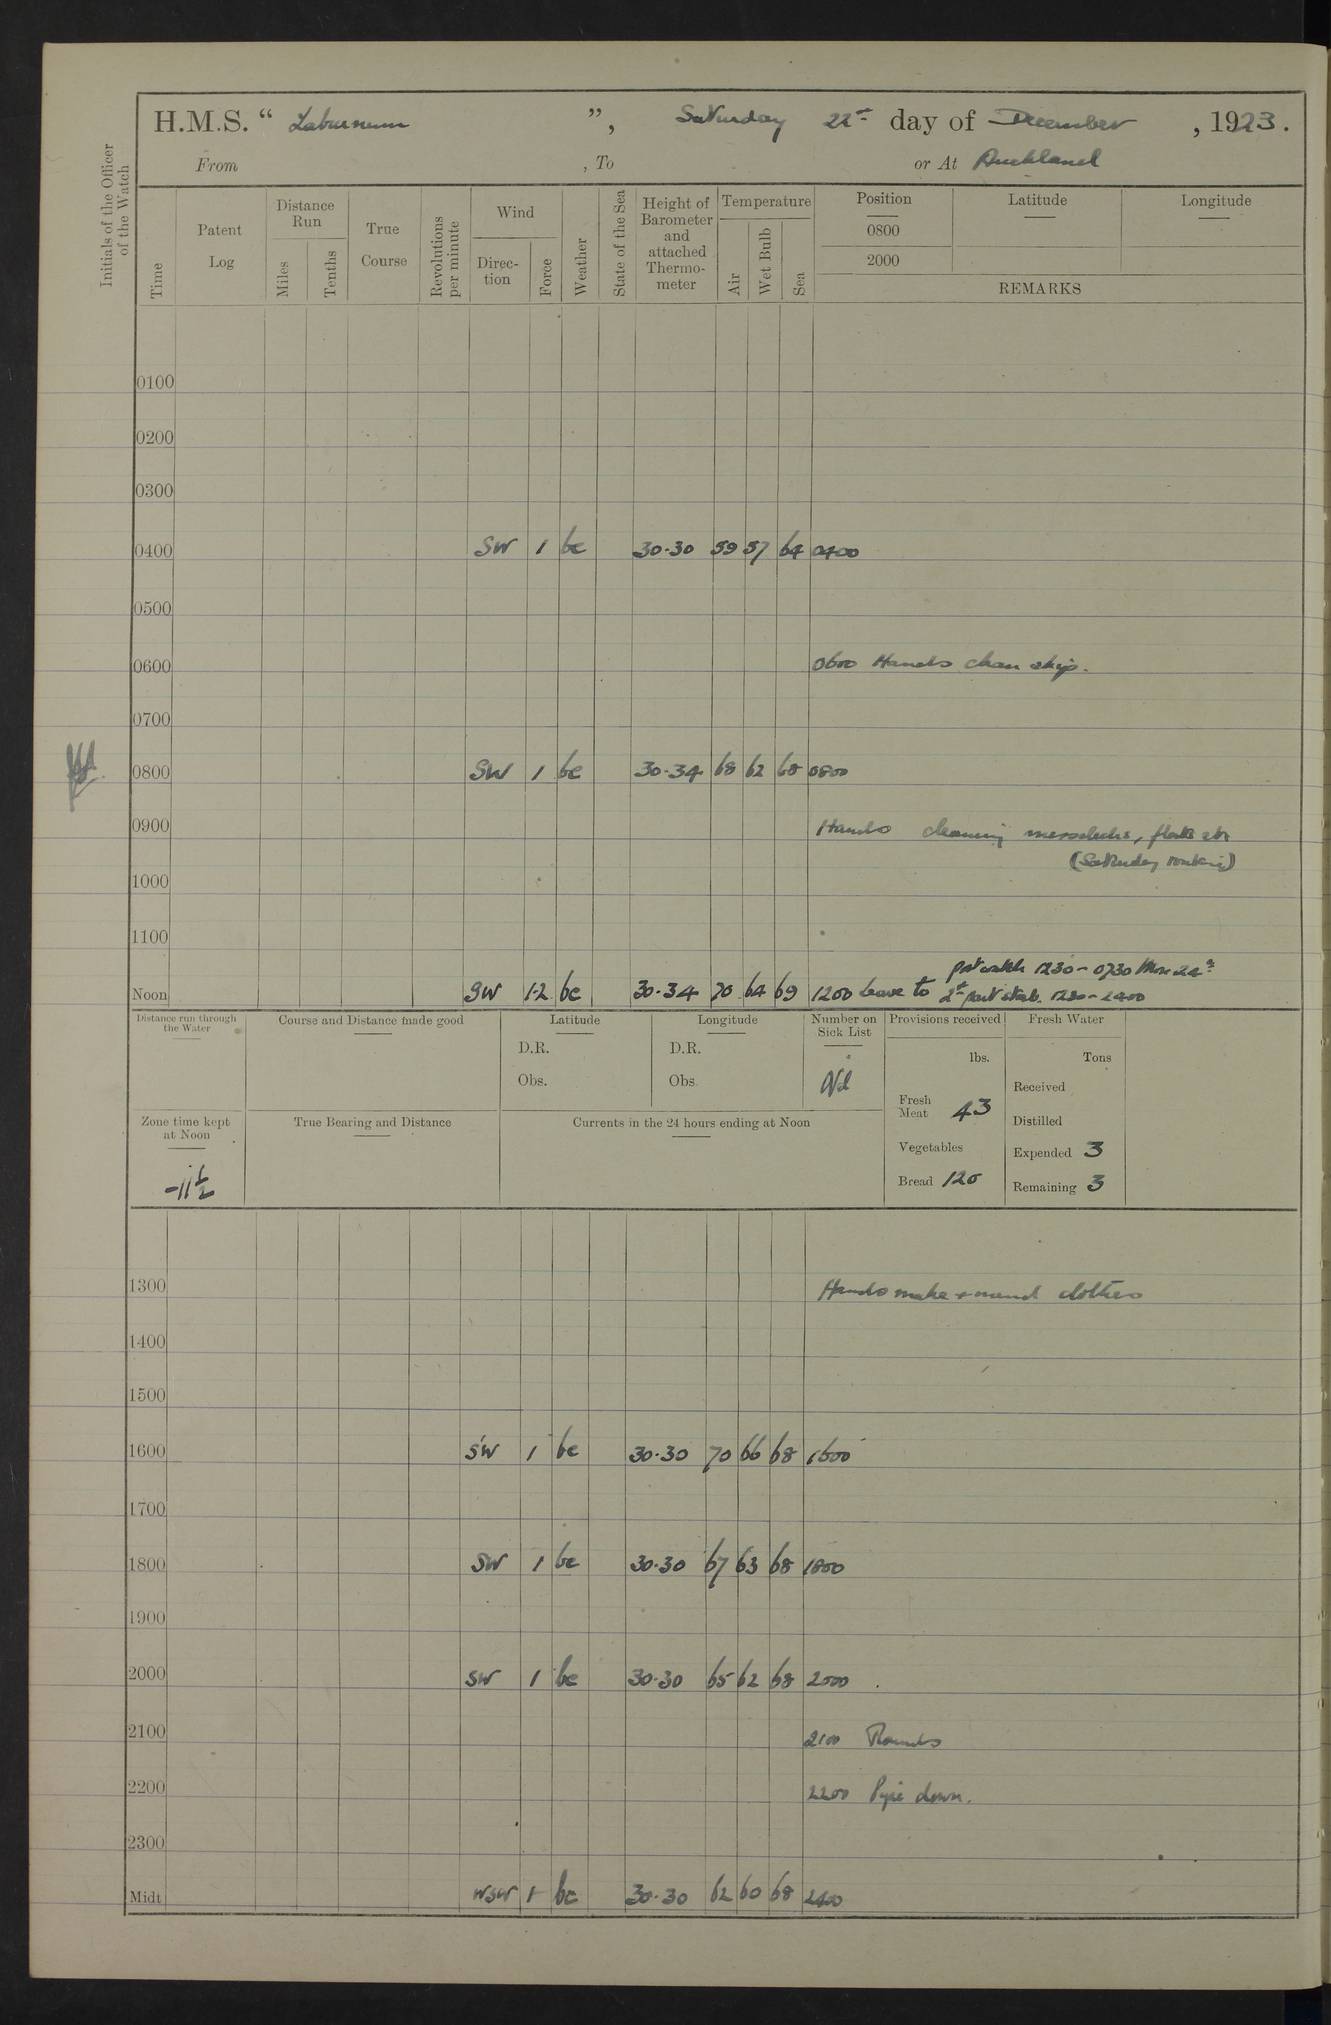 H.M.S. " Laburnum ", Saturday 22nd day of December, 1923.
From , To or At Auckland
Initials of the Officer of the Watch
Time
Patent Log
Distance Run
Miles
Tenths
True Course
Revolutions per minute
Wind
Direc-tion
Force
Weather
State of the Sea
Height of Barometer and attached Thermo-meter
Temperature
Air
Wet Bulb
Sea
Position
0800
2000
Latitude
Longitude
REMARKS
0100
0200
0300
0400 SW 1 bc 30.30 59 57 64 0400
0500
0600 0600 Hands clean ship.
0700
0800 SW 1 bc 30.34 68 62 68 0800
0900 Hands cleaning messdecks, flats etc
(Saturday routine)
1000
1100
port watch 1230 - 0730 Mon 24th
Noon SW 1-2 bc 30.34 70 64 69 1200 Leave to 2nd part stab. 1230 - 2400
Distance run through the Water
Course and Distance made good
Latitude
D.R.
Obs.
Longitude
D.R.
Obs.
Number on Sick List
Nil
Provisions received
lbs.
Fresh Meat 43
Vegetables
Bread 120
Fresh Water
Tons
Received
Distilled
Expended 3
Remaining 3
Zone time kept at Noon
-11½
True Bearing and Distance
Currents in the 24 hours ending at Noon
1300 Hands make & mend clothes
1400
1500
1600 SW 1 bc 30.30 70 66 68 1600
1700
1800 SW 1 bc 30.30 67 63 68 1800
1900
2000 SW 1 bc 30.30 65 62 68 2000
2100 2100 Rounds
2200 2200 Pipe down.
2300
Midt WSW 1 bc 30.30 62 60 68 2400